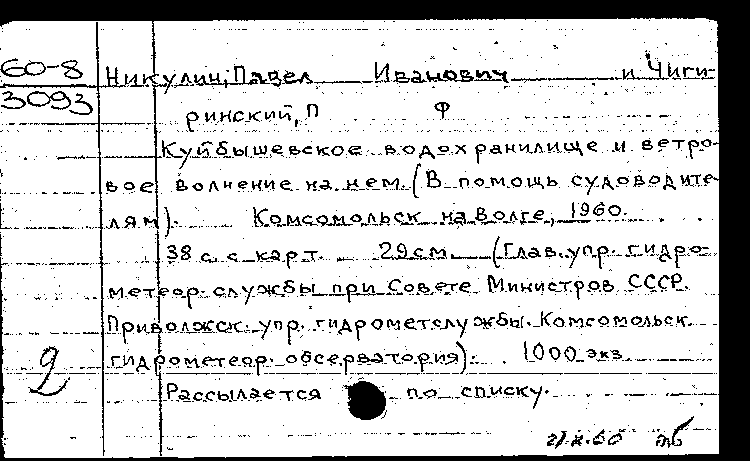 60-8
3093
Никулин, Павел Иванович и Чиги-
ринский, П Ф
Куйбышевское водохранилище и ветро-
вое волнение на нем. (В помощь судоводите-
лям). Комсомольск на Волге, 1960.
38 с. с карт. 29 см. (Глав. упр. гидро-
метеор. службы при Совете Министров СССР.
Приволжск. упр. гидрометслужбы. Комсомольск.
гидрометеор. обсерватория). 1000 экз.
Рассылается по списку.
2
21.X.60